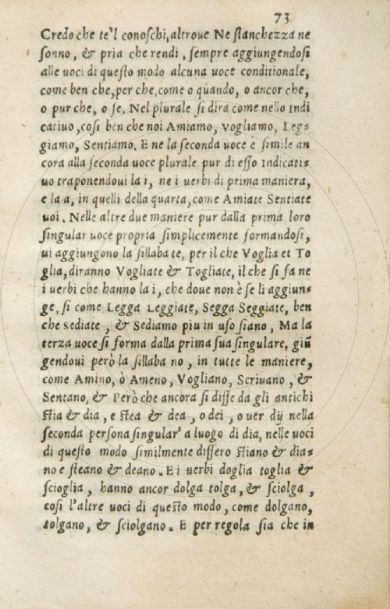 73
Credo che te'l conoschi, altroue Ne stanchezza ne
sonno, & pria che rendi, sempre aggiungendosi
alle uoci di questo modo alcuna uoce conditionale,
come ben che, per che, come o quando, o ancor che,
o pur che, o se. Nel plurale si dira come nello Indi
catiuo, cosi ben che noi Amiamo, Vogliamo, Leg⸗
giamo, Sentiamo. E ne la seconda uoce è simile an
cora alla seconda uoce plurale pur di esso Indicati⸗
uo traponendoui la i, ne i uerbi di prima maniera,
e la a, in quelli della quarta, come Amiate Sentiate
uoi. Nelle altre due maniere pur dalla prima loro
singular uoce propria simplicemente formandosi,
ui aggiungono la sillaba te, per il che Voglia et To
glia, diranno Vogliate & Togliate, il che si fa ne
i uerbi che hanno la i, che doue non è se li aggiun⸗
ge, si come Legga Leggiate, Segga Seggiate, ben
che sediate, & Sediamo piu in uso siano, Ma la
terza uoce si forma dalla prima sua singulare, giũ
gendoui però la sillaba no, in tutte le maniere,
come Amino, ò Ameno, Vogliano, Scriuano, &
Sentano, & Però che ancora si disse da gli antichi
stia & dia, e stea & dea, o dei, o uer dij nella
seconda persona singular' a luogo di dia, nelle uoci
di questo modo similmente dissero stiano & dia⸗
no e steano & deano. E i uerbi doglia toglia &
scioglia, hanno ancor dolga tolga, & sciolga,
cosi l'altre uoci di questo modo, come dolgano,
tolgano, & sciolgano. E per regola sia che in